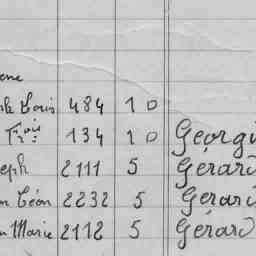 Louis 484 10
Frois 134 10 Georgi
eph 2111 5 Gérard
n Léon 2232 5 Gerard
n Marie 2112 5 Gérard